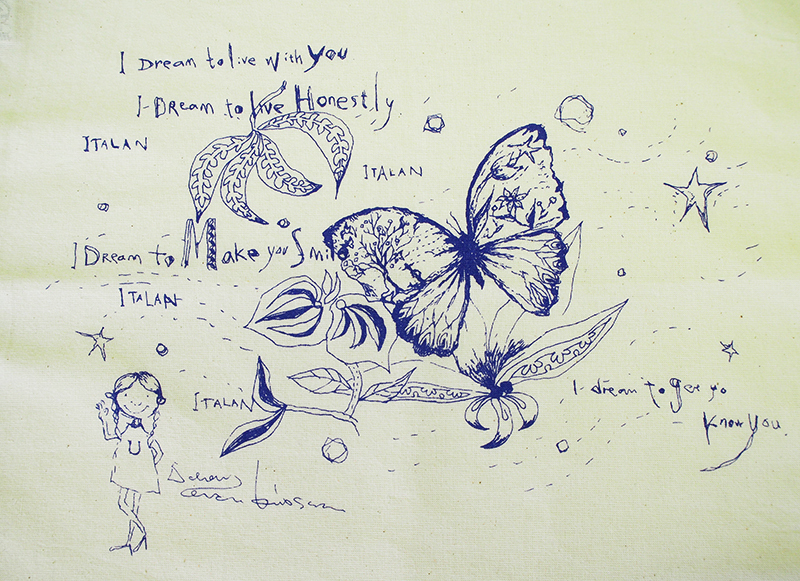 I Dream to live with you
I Dream to live Honestly
ITALAN
ITALAN
I Dream to Make you Smile
ITALAN
ITALAN
I dream to ger yo
know you